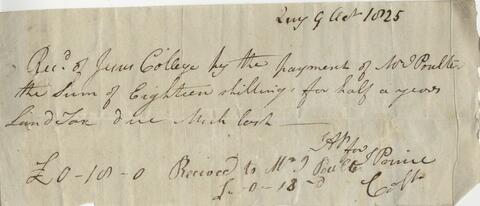 Quy 9 Octr 1825
Recd. of Jesus College by the payment of Mr J Poulter
the Sum of Eighteen shillings for half a years
Land Tax due Mich last
£0-18-0 Received to Mr J Poulter Prince
£ - 0 - 18 - d Collr